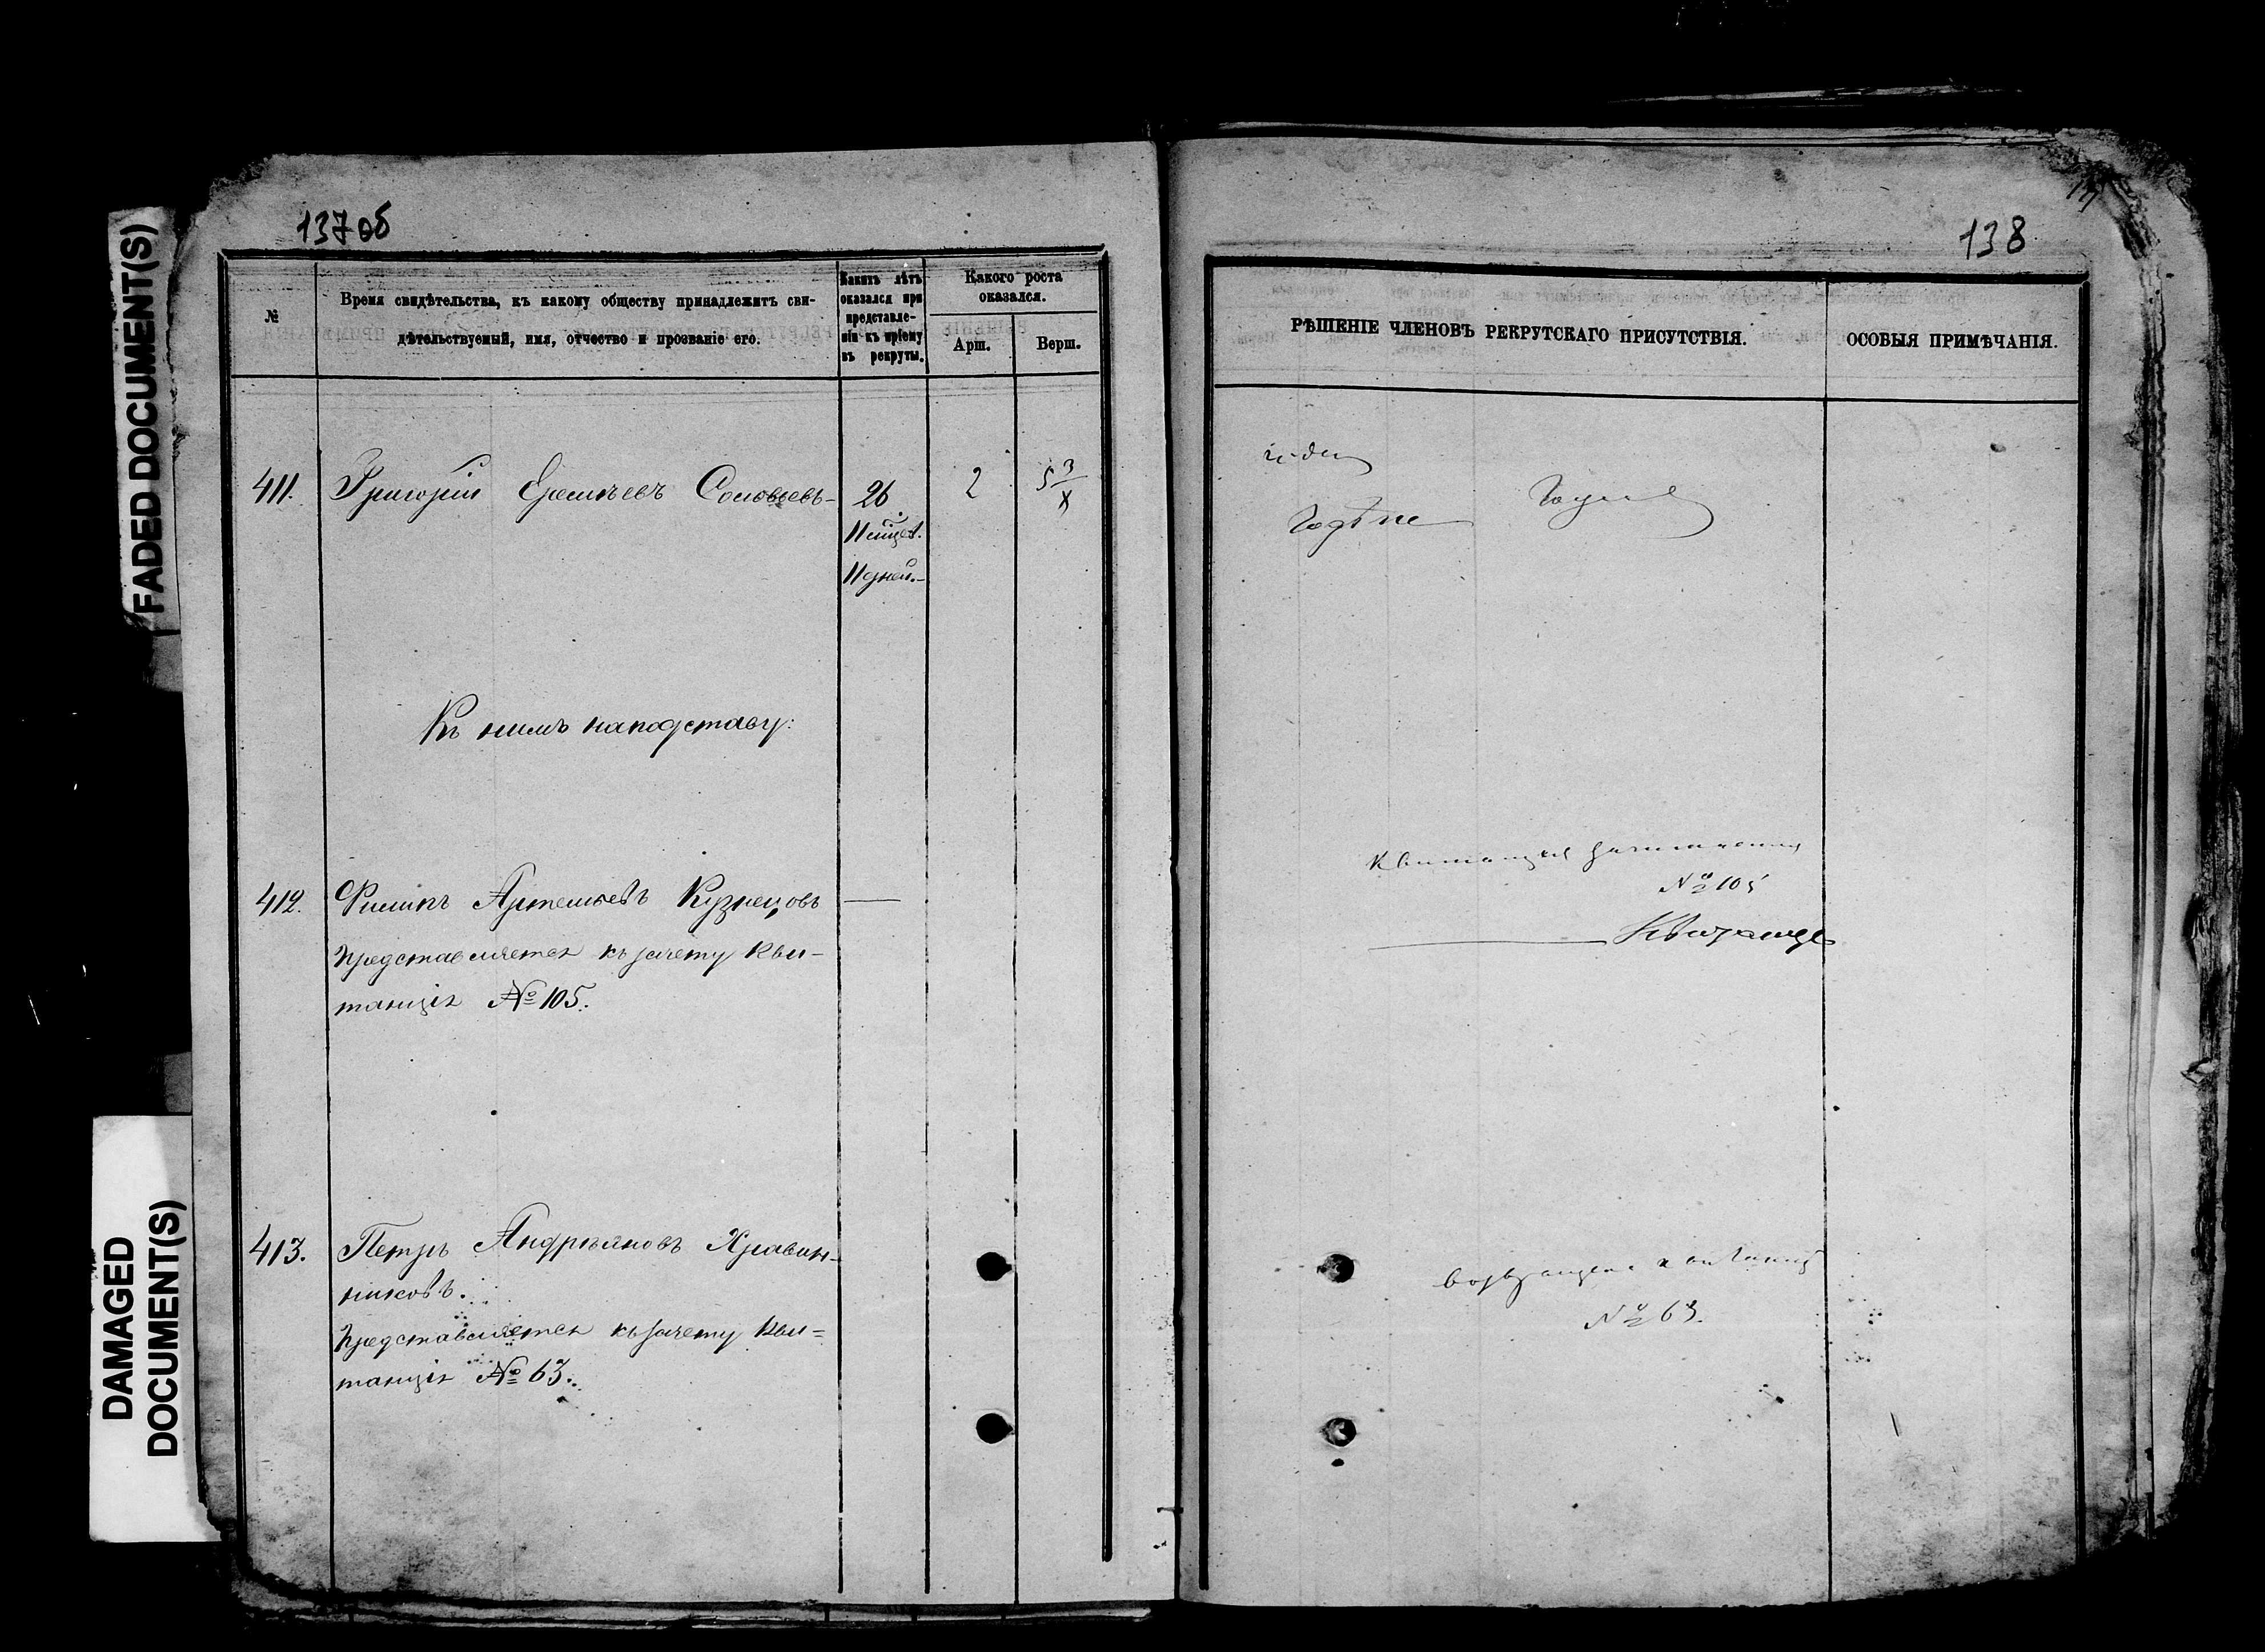 FADED DOCUMENT(S)
DAMAGED
DOCUMENT(S)
137об
№
Время свидѣтельства, къ какому обществу принадлежитъ сви-
дѣтельствуемый, имя, отчество и прозваніе его.
Какихъ лѣтъ
оказался при
представле-
ніи къ пріему
въ рекруты.
Какого роста
оказался.
Арш.
Верш.
411. Григорій Соловьевъ 26 2 5 3/8
11 дней.
Къ нимъ на подставу:
412. Филипъ Артемьевъ Кузнецовъ —
представляется къ зачету кви-
танція № 105.
413. Петръ Андрѣяновъ
никовъ.
представляется къ зачету кви=
танція № 63.
138
РѢШЕНІЕ ЧЛЕНОВЪ РЕКРУТСКАГО ПРИСУТСТВІЯ.
ОСОБЫЯ ПРИМѢЧАНІЯ.
годенъ
Квитанція
№ 105
возвращена квитанція
№ 63.